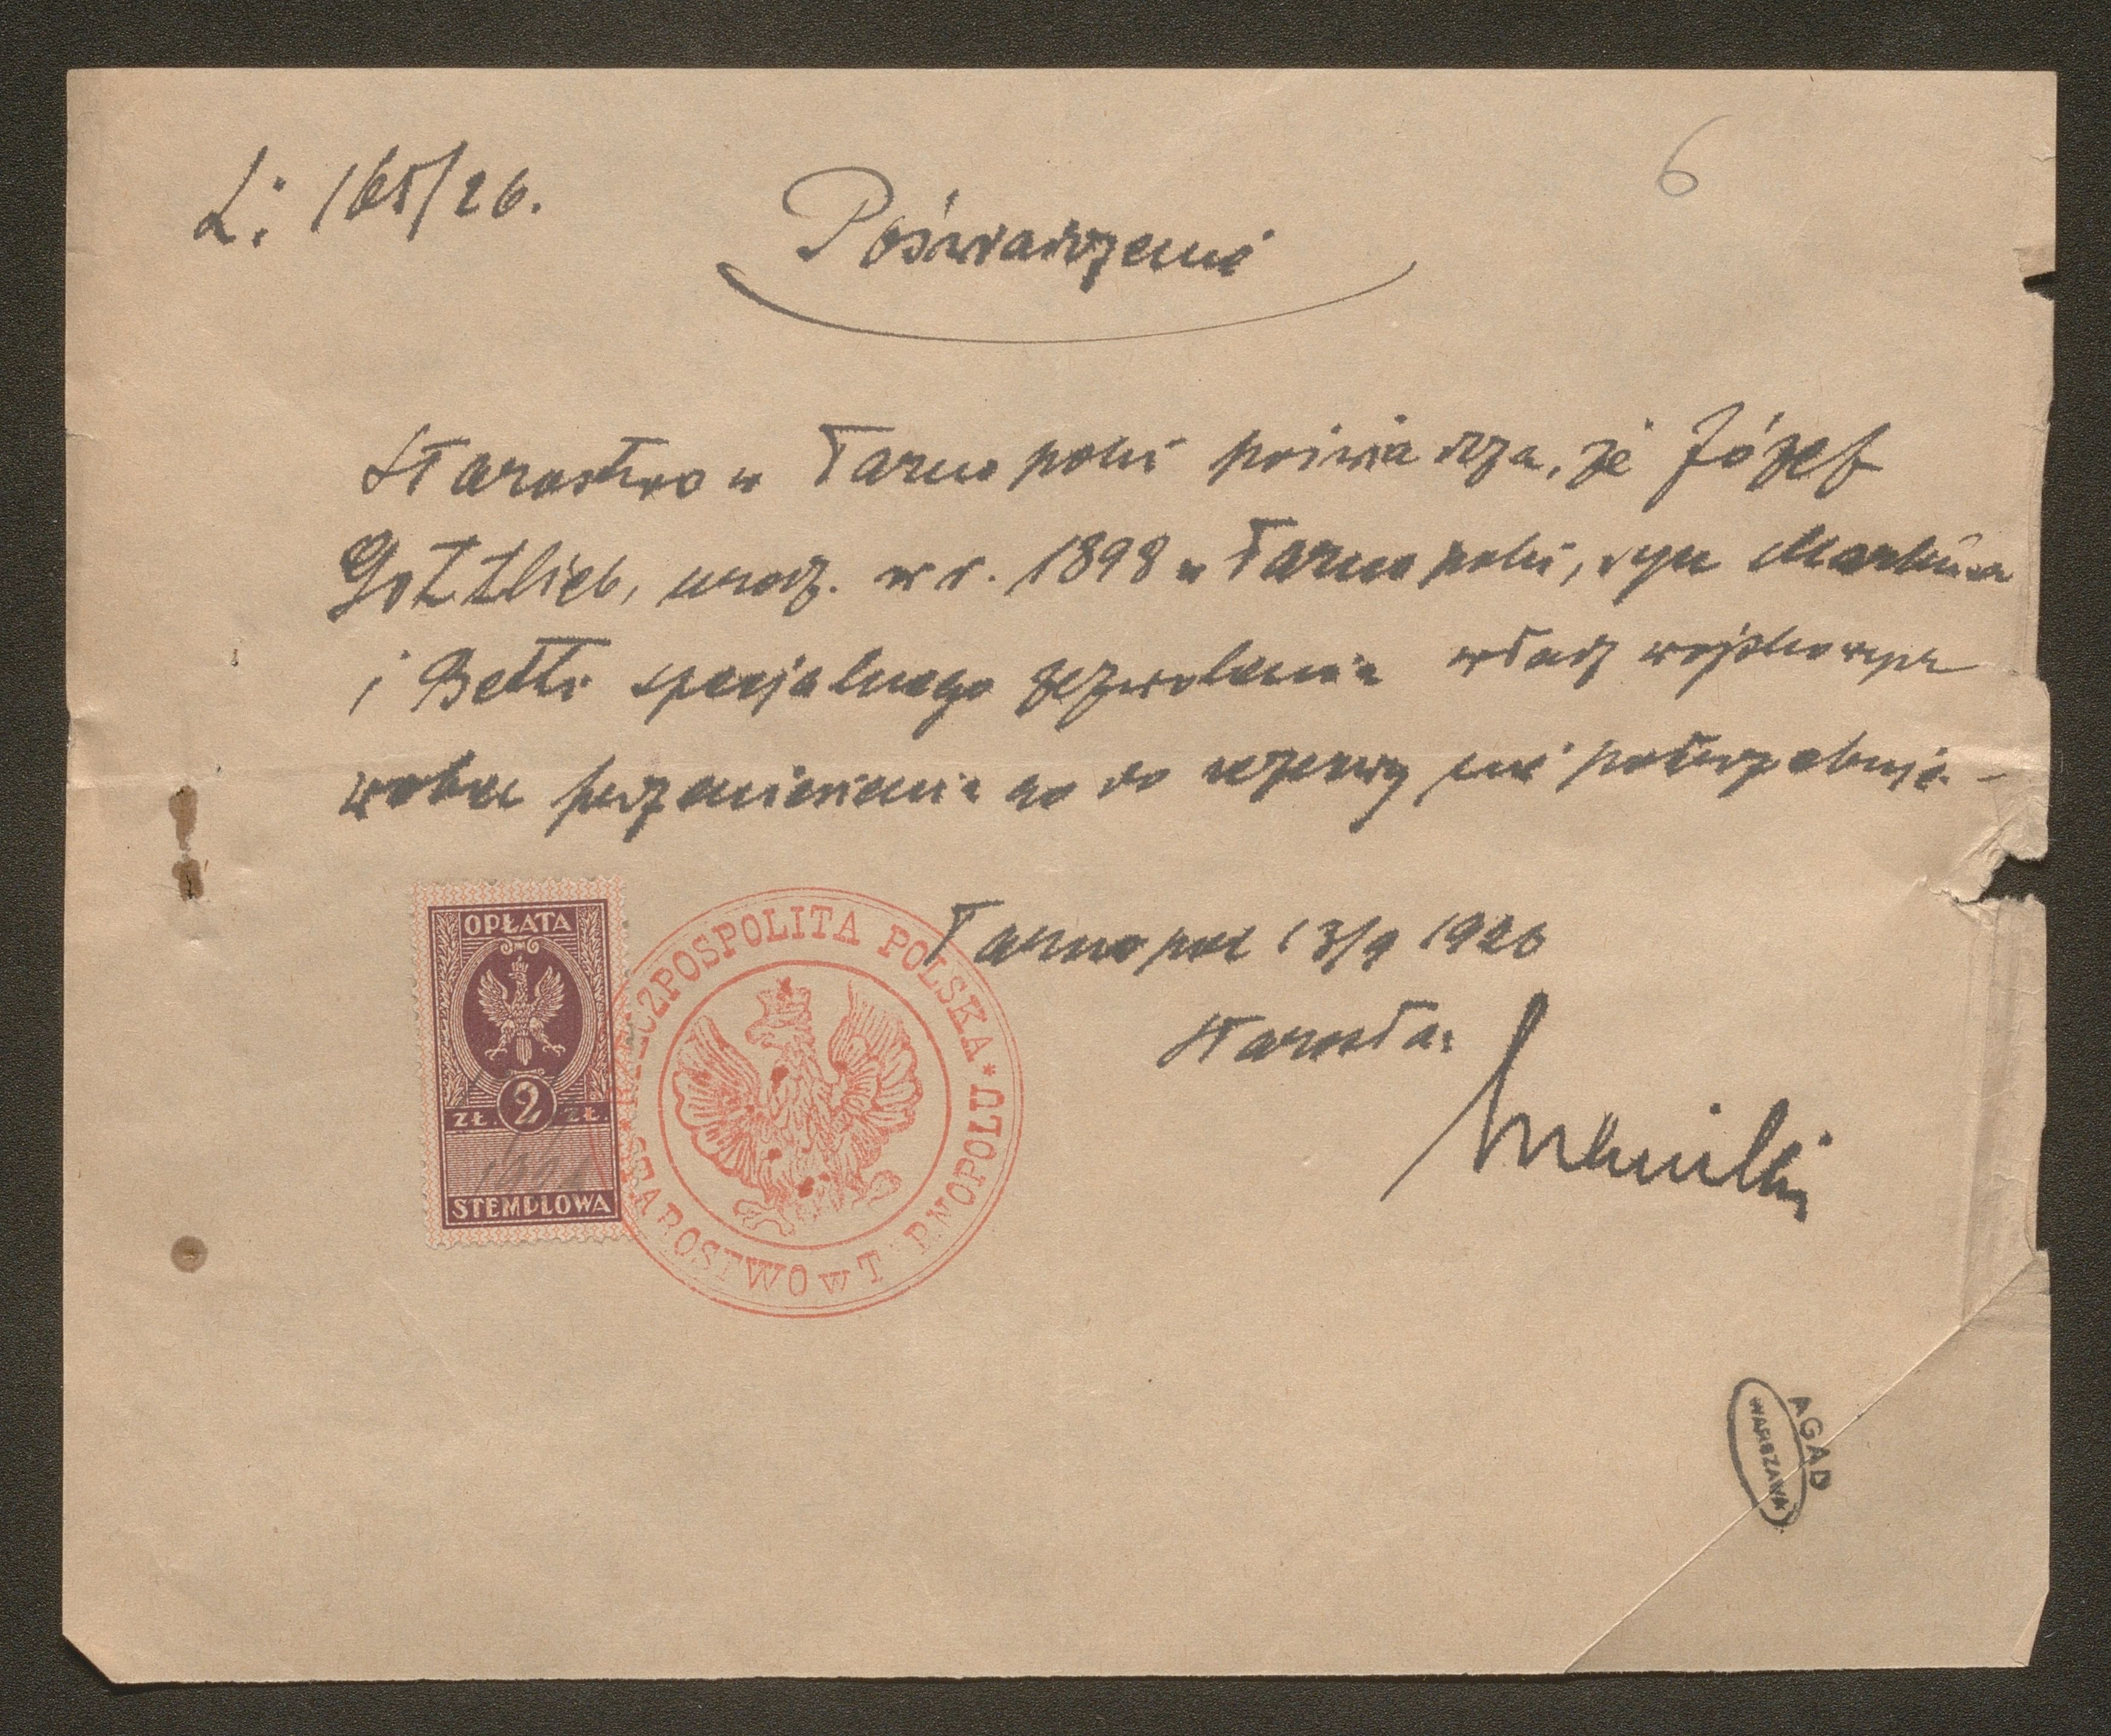 L: 165/26.
6
Poświadczenie
Starostwo w Tarnopolu poświadcza, że Józef
Gottlieb, urodz. w r. 1898 w Tarnopolu, syn Markusa
i Betti specjalnego zezwolenia władz wojskowych
wobec przeniesienia go do rezerwy nie potrzebuje –
Tarnopol 13/9 1926
Starosta:
OPŁATA
ZŁ. 2 ZŁ.
STEMPLOWA
RZECZPOSPOLITA POLSKA * STAROSTWO w T RNOPOLU
AGAD
WARSZAWA